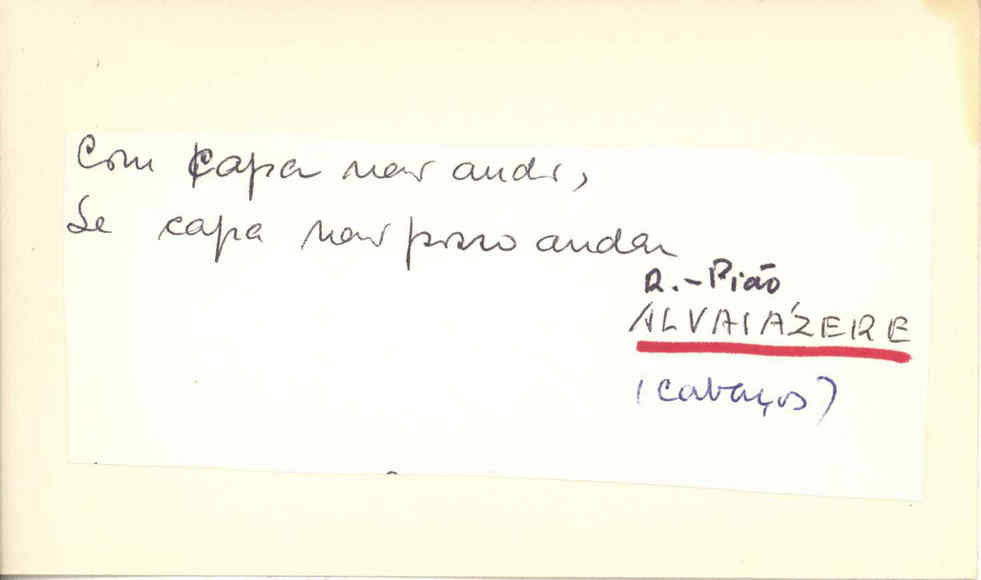 Com capa não ando,
Se capa não posso andar
R.-Pião
ALVAIÁZERE
(Cabaços)